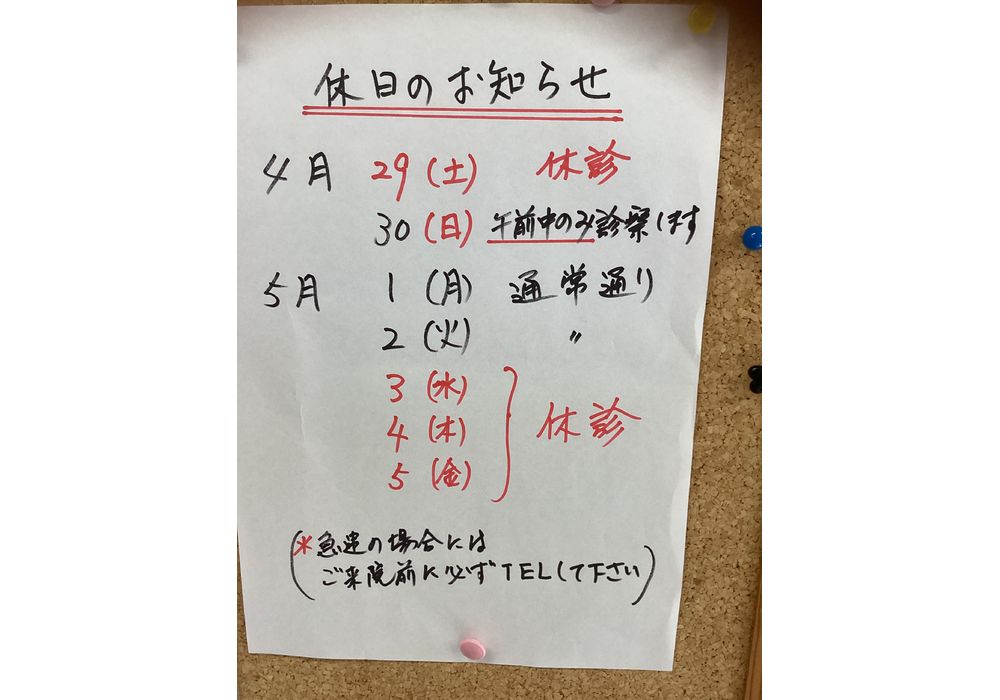 休日のお知らせ
4月 29(土) 休診
30(日) 午前中のみ診察します
5月 1(月) 通常通り
2(火) 〃
3(水)
4(木) 休診
5(金)
(*急遽の場合には
ご来院前に必ずTELして下さい)